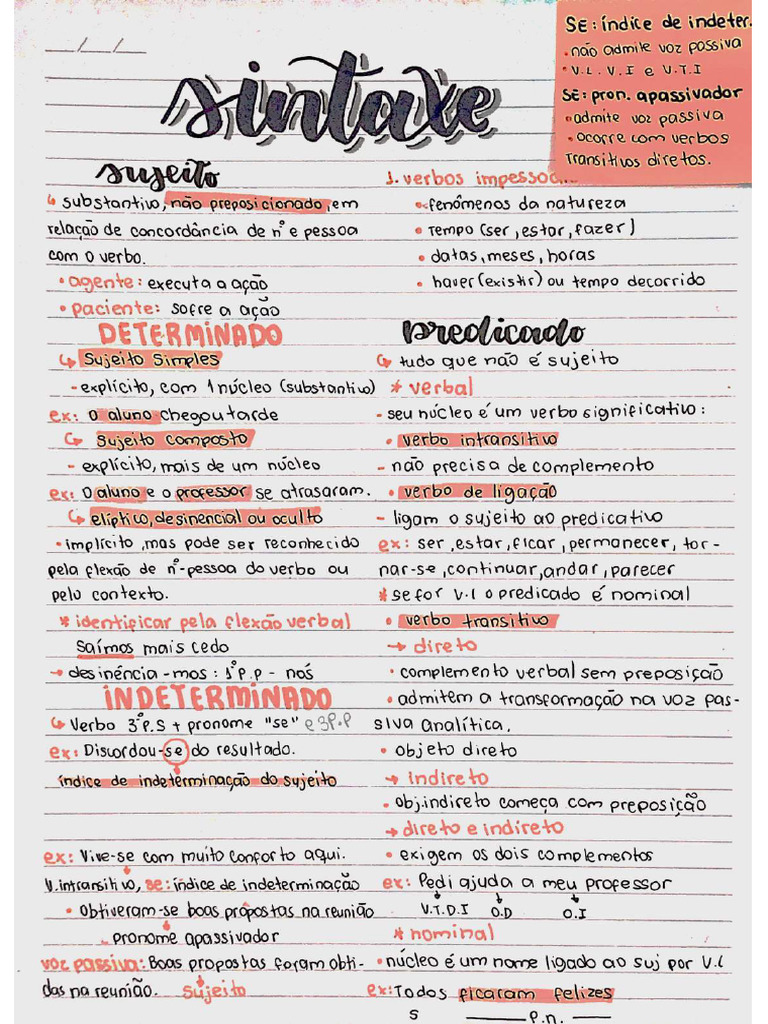 SE: índice de indeter.
• não admite voz passiva
• V.L. V.I e V.T.I
SE: pron. apassivador
• admite voz passiva
• ocorre com verbos
Transitivos diretos.
__/__/__
sintaxe
sujeito
↳ substantivo, não preposicionado, em
relação de concordância de nº e pessoa
com o verbo.
• agente: executa a ação
• paciente: sofre a ação
DETERMINADO
↳ Sujeito Simples
- explícito, com 1 núcleo (substantivo)
ex: O aluno chegou tarde
↳ Sujeito composto
- explícito, mais de um núcleo
ex: O aluno e o professor se atrasaram.
↳ elíptico, desinencial ou oculto
• implícito, mas pode ser reconhecido
pela flexão de nº-pessoa do verbo ou
pelo contexto.
* identificar pela flexão verbal
Saímos mais cedo
→ desinência -mos: 1º P.P - nós
INDETERMINADO
↳ Verbo 3º P.S + pronome "se" e 3P.P
ex: Discordou-se do resultado.
índice de indeterminação do sujeito
ex: Vive-se com muito conforto aqui.
V.intransitivo, se: índice de indeterminação
• Obtiveram-se boas propostas na reunião
pronome apassivador
voz passiva: Boas propostas foram obti-
das na reunião. Sujeito
1. verbos impessoa
• fenômenos da natureza
• Tempo (ser, estar, fazer)
• datas, meses, horas
• haver (existir) ou tempo decorrido
Predicado
↳ tudo que não é sujeito
* verbal
- seu núcleo é um verbo significativo:
• verbo intransitivo
- não precisa de complemento
• verbo de ligação
- ligam o sujeito ao predicativo
ex: ser, estar, ficar, permanecer, tor-
nar-se, continuar, andar, parecer
* se for V.L o predicado é nominal
• verbo transitivo
→ direto
• complemento verbal sem preposição
• admitem a transformação na voz pas-
siva analítica.
• objeto direto
→ indireto
• obj. indireto começa com preposição
→ direto e indireto
• exigem os dois complementos
ex: Pedi ajuda a meu professor
V.T.D.I O.D O.I
* nominal
• núcleo é um nome ligado ao suj por V.L
ex: Todos ficaram felizes
S P.n.